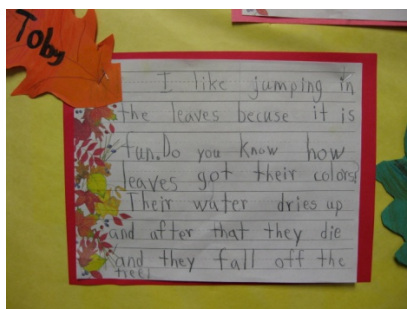 Toby
I like jumping in
the leaves becuse it is
fun. Do you know how
leaves got their colors?
Their water dries up
and after that they die
and they fall off the
tree!